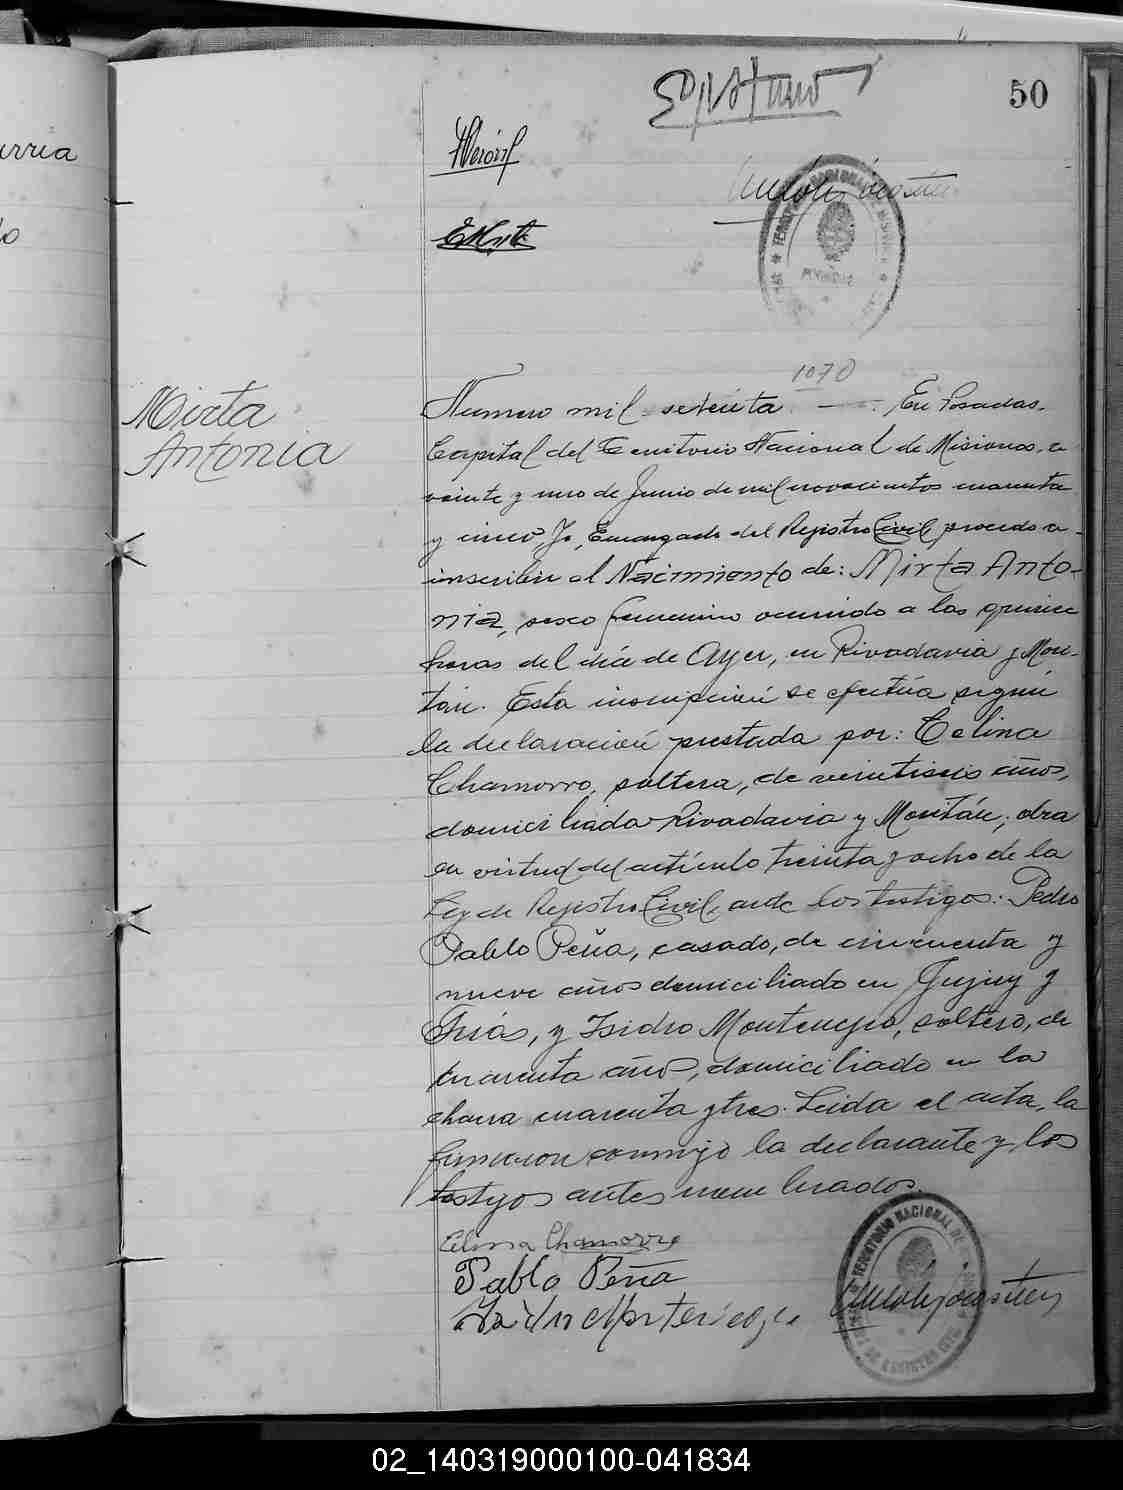 50
urria
lo
1070
Mirta
Antonia
Numero mil setenta — En Posadas,
Capital del Territorio Nacional de Misiones, a
veinte y uno de Junio de mil novecientos cuarenta
y cinco Yo, Encargado del Registro Civil, procedo a
inscribir el Nacimiento de: Mirta Anto-
nia, sexo femenino ocurrido a las quince
horas del día de Ayer, en Rivadavia y Mon-
tán. Esta inscripción se efectúa según
la declaración prestada por: Celina
Chamorro, soltera, de veintiseis años,
domiciliada Rivadavia y Montán; obra
en virtud del artículo treinta y ocho de la
Ley de Registro Civil, ante los testigos: Pedro
Pablo Peña, casado, de cincuenta y
nueve años domiciliado en Jujuy y
Frías, y Isidro Montenegro, soltero, de
cuarenta años, domiciliado en la
chacra cuarenta y tres. Leida el acta, la
firmaron conmigo la declarante y los
testigos antes nombrados.
Celina Chamorro
Pablo Peña
Isidro Montenegro
TERRITORIO NACIONAL DE
REGISTRO CIVIL
02_140319000100-041834